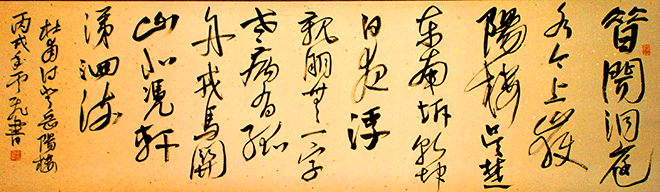 昔聞洞庭
水今上嶽
陽樓吳楚
東南坼乾坤
日夜浮
親朋無一字
老病有孤
舟戎馬關
山北凴軒
涕泗流
杜甫詩登岳陽樓
丙戌書